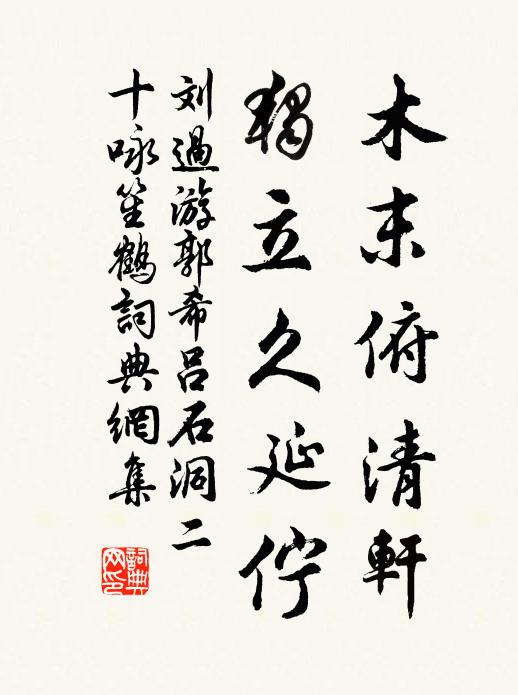 木末俯清軒
獨立久延佇
刘過游郭希吕石洞二
十咏笙鶴詞典網集
詞典网印